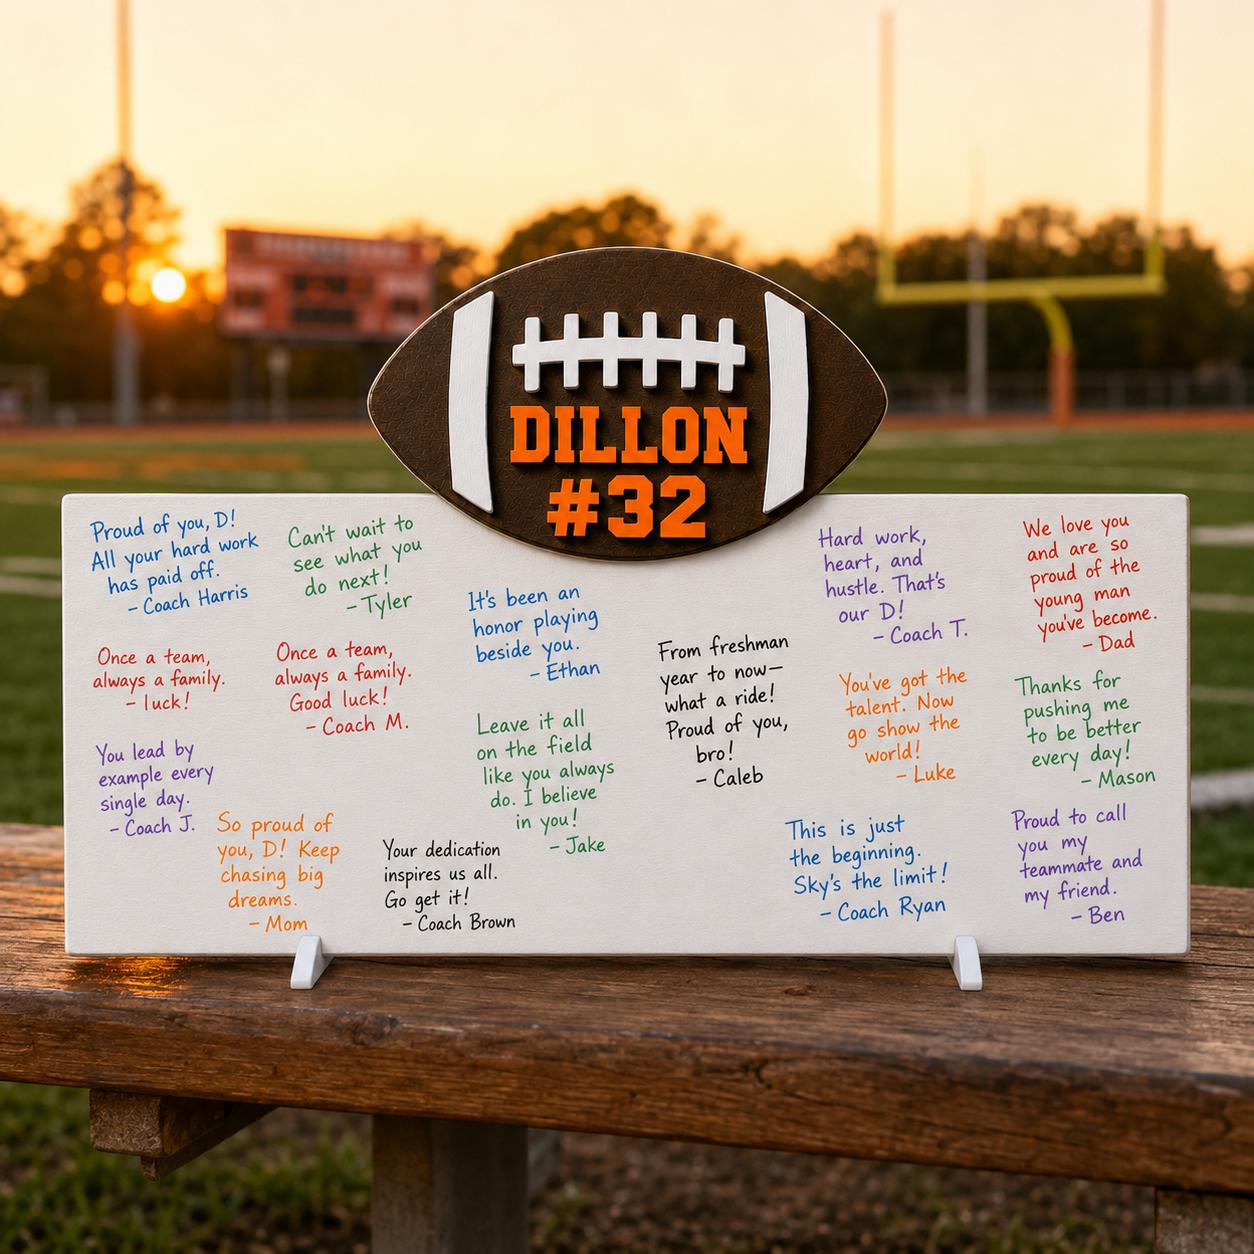 DILLON
#32
Proud of you, D!
All your hard work
has paid off.
- Coach Harris
Can't wait to
see what you
do next!
- Tyler
It's been an
honor playing
beside you.
- Ethan
Hard work,
heart, and
hustle. That's
our D!
- Coach T.
We love you
and are so
proud of the
young man
you've become.
- Dad
Once a team,
always a family.
- luck!
Once a team,
always a family.
Good luck!
- Coach M.
From freshman
year to now—
what a ride!
Proud of you,
bro!
- Caleb
You've got the
talent. Now
go show the
world!
- Luke
Thanks for
pushing me
to be better
every day!
- Mason
You lead by
example every
single day.
- Coach J.
Leave it all
on the field
like you always
do. I believe
in you!
- Jake
So proud of
you, D! Keep
chasing big
dreams.
- Mom
Your dedication
inspires us all.
Go get it!
- Coach Brown
This is just
the beginning.
Sky's the limit!
- Coach Ryan
Proud to call
you my
teammate and
my friend.
- Ben